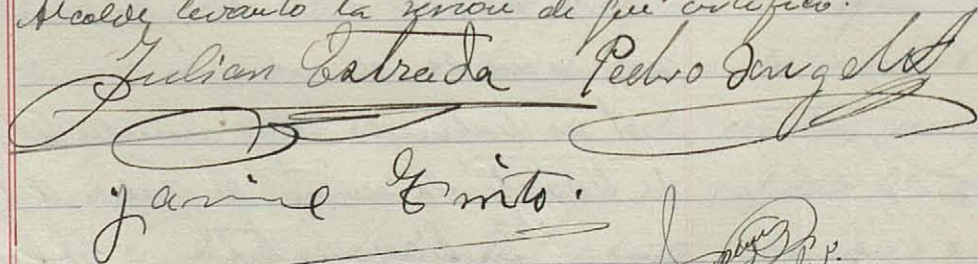 Alcalde levanto la sesion de que certifico.
Julian Estrada Pedro
Jaime